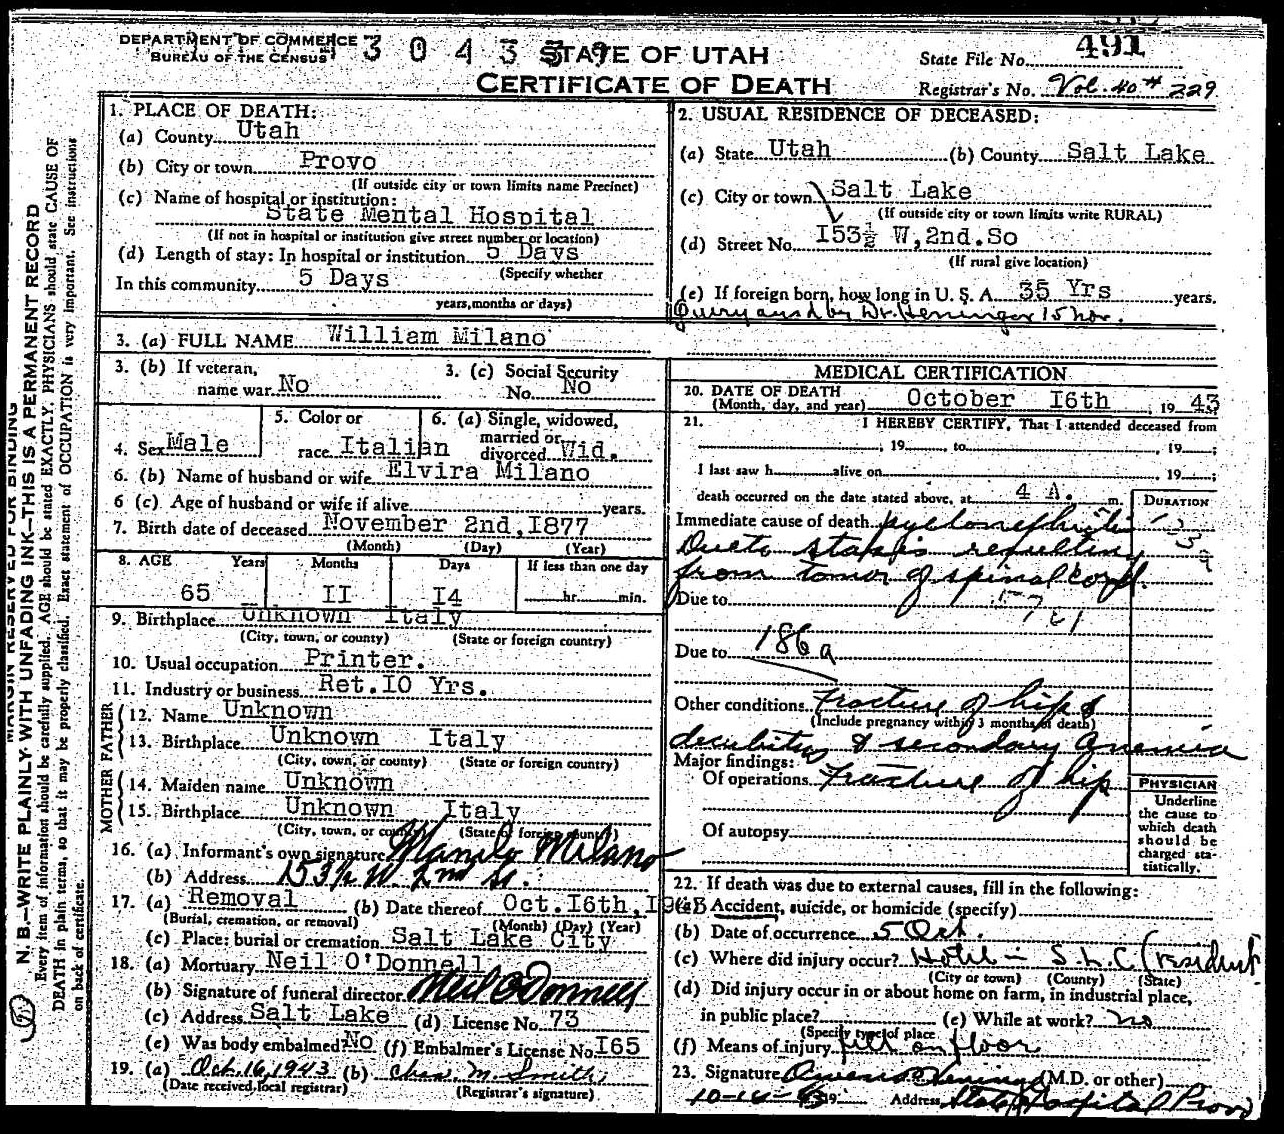 DEPARTMENT OF COMMERCE
BUREAU OF THE CENSUS
STATE OF UTAH
CERTIFICATE OF DEATH
State File No. 491
Registrar's No. Vol. 40 # 229
MARGIN RESERVED FOR BINDING
N. B.—WRITE PLAINLY WITH UNFADING INK—THIS IS A PERMANENT RECORD
Every item of information should be carefully supplied. AGE should be stated EXACTLY. PHYSICIANS should state CAUSE OF
DEATH in plain terms, so that it may be properly classified. Exact statement of OCCUPATION is very important. See instructions
on back of certificate.
1. PLACE OF DEATH:
(a) County Utah
(b) City or town Provo
(If outside city or town limits name Precinct)
(c) Name of hospital or institution:
State Mental Hospital
(If not in hospital or institution give street number or location)
(d) Length of stay: In hospital or institution 5 Days
(Specify whether
In this community 5 Days
years, months or days)
2. USUAL RESIDENCE OF DECEASED:
(a) State Utah (b) County Salt Lake
(c) City or town Salt Lake
(If outside city or town limits write RURAL)
(d) Street No. I53½ W,2nd.So
(If rural give location)
(e) If foreign born, how long in U. S. A. 35 Yrs years.
Query ansd by Dr. Heninger 15 Nov.
3. (a) FULL NAME William Milano
3. (b) If veteran,
name war No
3. (c) Social Security
No. No
4. Sex Male
5. Color or
race Italian
6. (a) Single, widowed,
married or
divorced Wid.
6. (b) Name of husband or wife Elvira Milano
6 (c) Age of husband or wife if alive years.
7. Birth date of deceased November 2nd,I877
(Month) (Day) (Year)
8. AGE Years Months Days If less than one day
65 II I4 hr. min.
9. Birthplace Unknown Italy
(City, town, or county) (State or foreign country)
10. Usual occupation Printer.
11. Industry or business Ret.IO Yrs.
FATHER
12. Name Unknown
13. Birthplace Unknown Italy
(City, town, or county) (State or foreign country)
MOTHER
14. Maiden name Unknown
15. Birthplace Unknown Italy
(City, town, or county) (State or foreign country)
16. (a) Informant's own signature Manilo Milano
(b) Address 153½ W 2nd So.
17. (a) Removal (b) Date thereof Oct.I6th,I943
(Burial, cremation, or removal) (Month) (Day) (Year)
(c) Place: burial or cremation Salt Lake City
18. (a) Mortuary Neil O'Donnell
(b) Signature of funeral director Neil O'Donnell
(c) Address Salt Lake (d) License No. 73
(e) Was body embalmed? No (f) Embalmer's License No. I65
19. (a) Oct. 16, 1943 (b) Chas. M. Smith
(Date received local registrar) (Registrar's signature)
MEDICAL CERTIFICATION
20. DATE OF DEATH
(Month, day, and year) October I6th , 19 43
21. I HEREBY CERTIFY, That I attended deceased from
, 19 , to , 19 ;
I last saw h alive on 19 ;
death occurred on the date stated above, at 4 A. m.
DURATION
Immediate cause of death pyelonephritis
Due to stasis resulting
from tumor of spinal cord.
Due to
Due to 186a
Other conditions Fracture of hip &
(Include pregnancy within 3 months of death)
decubitus & secondary Anemia
Major findings:
Of operations Fracture of hip
Of autopsy
PHYSICIAN
Underline
the cause to
which death
should be
charged sta-
tistically.
22. If death was due to external causes, fill in the following:
(a) Accident, suicide, or homicide (specify)
(b) Date of occurrence 5 Oct.
(c) Where did injury occur? Hotel — S.L.C. (resident
(City or town) (County) (State)
(d) Did injury occur in or about home on farm, in industrial place,
in public place? (e) While at work? no
(Specify type of place
(f) Means of injury fell on floor
23. Signature Owen P Heninger (M.D. or other)
10-16-43 19 Address State Hospital Provo